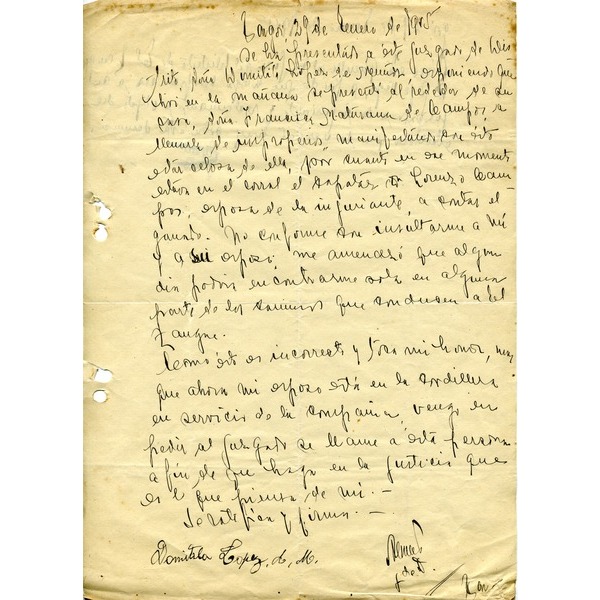 29 de Enero de 1905
Se ha presentado a este Juzgado de Dis
trito, doña Domitila López de exponiendo que
hoy en la mañana se presentó alrededor de su
casa, doña Francisca Maturana de Campos, a
llenarla de improperios, manifestándose esto
estar celosa de ella, por cuanto en ese momento
estaba en el corral el capataz Lorenzo Cam
pos, esposo de la injuriante, a contar el
ganado. No conforme con insultarme a mí
y a mi esposo me amenazó que algún
día podría encontrarme sola en alguna
parte de los caminos que conducen a El
Zangue.
Como esto es incorrecto y toca mi honor, mas
que ahora mi esposo está en la cordillera
en servicio de la compañía, vengo en
pedir al Juzgado se llame a esta persona
a fin de que haga en la justicia que
es lo que piensa de mí. —
Se ratifica y firma. —
Domitila Lopez. de M.